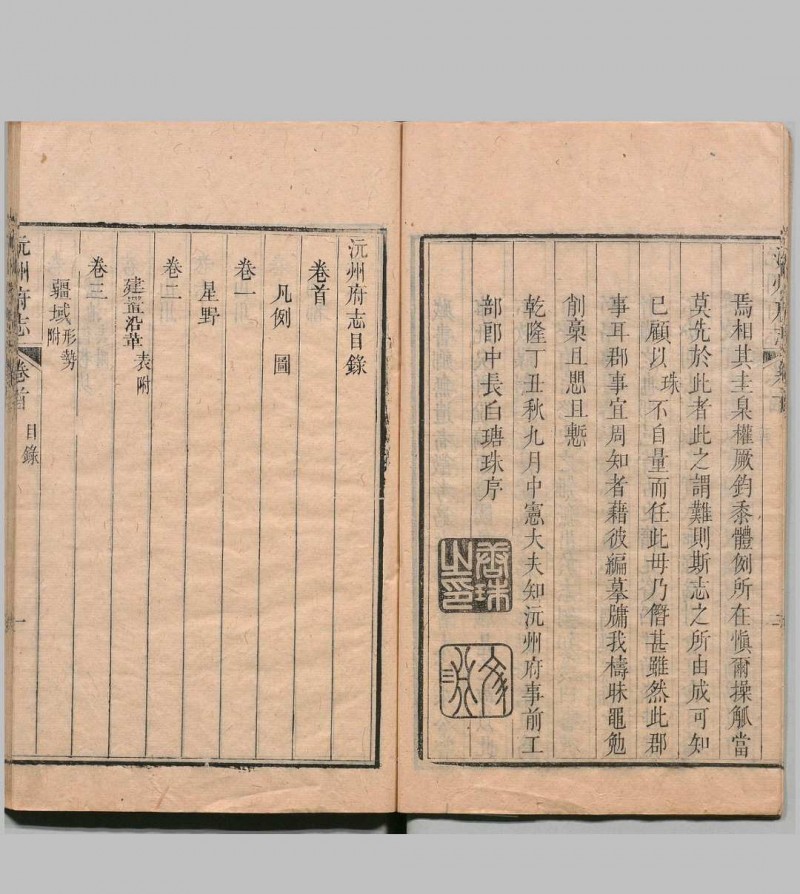 焉相其圭臬權厥鈞黍體例所在愼爾操觚當
莫先於此者此之謂難則斯志之所由成可知
已顧以珠不自量而任此毋乃僭甚雖然此郡
事耳郡事宜周知者藉彼編摹牖我檮昧黽勉
削稾且思且慙
乾隆丁丑秋九月中憲大夫知沅州府事前工
部郎中長白瑭珠序
瑭珠之印
沅州府志目錄
卷首
凡例 圖
卷一
星野
卷二
建置沿革 表附
卷三
疆域 形勢附
沅州府志 卷首 目錄 一